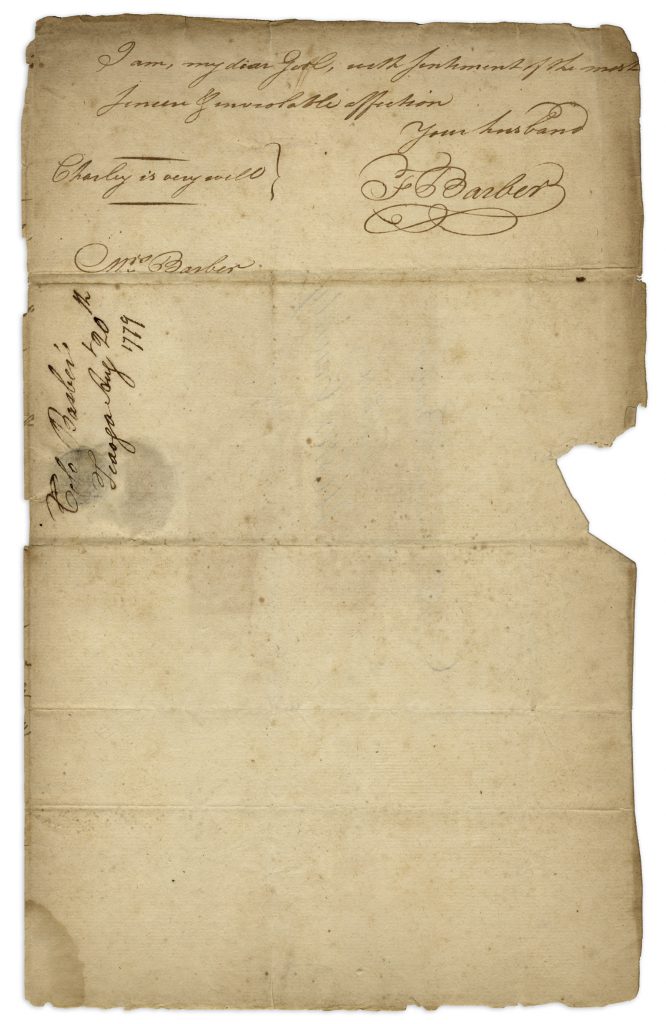 I am, my dear Girl, with sentiment of the most
sincere & inviolable affection
Your husband
Charley is very well }
F Barber
Mrs Barber
Colo Barber's
Tioga Augt 20th
1779